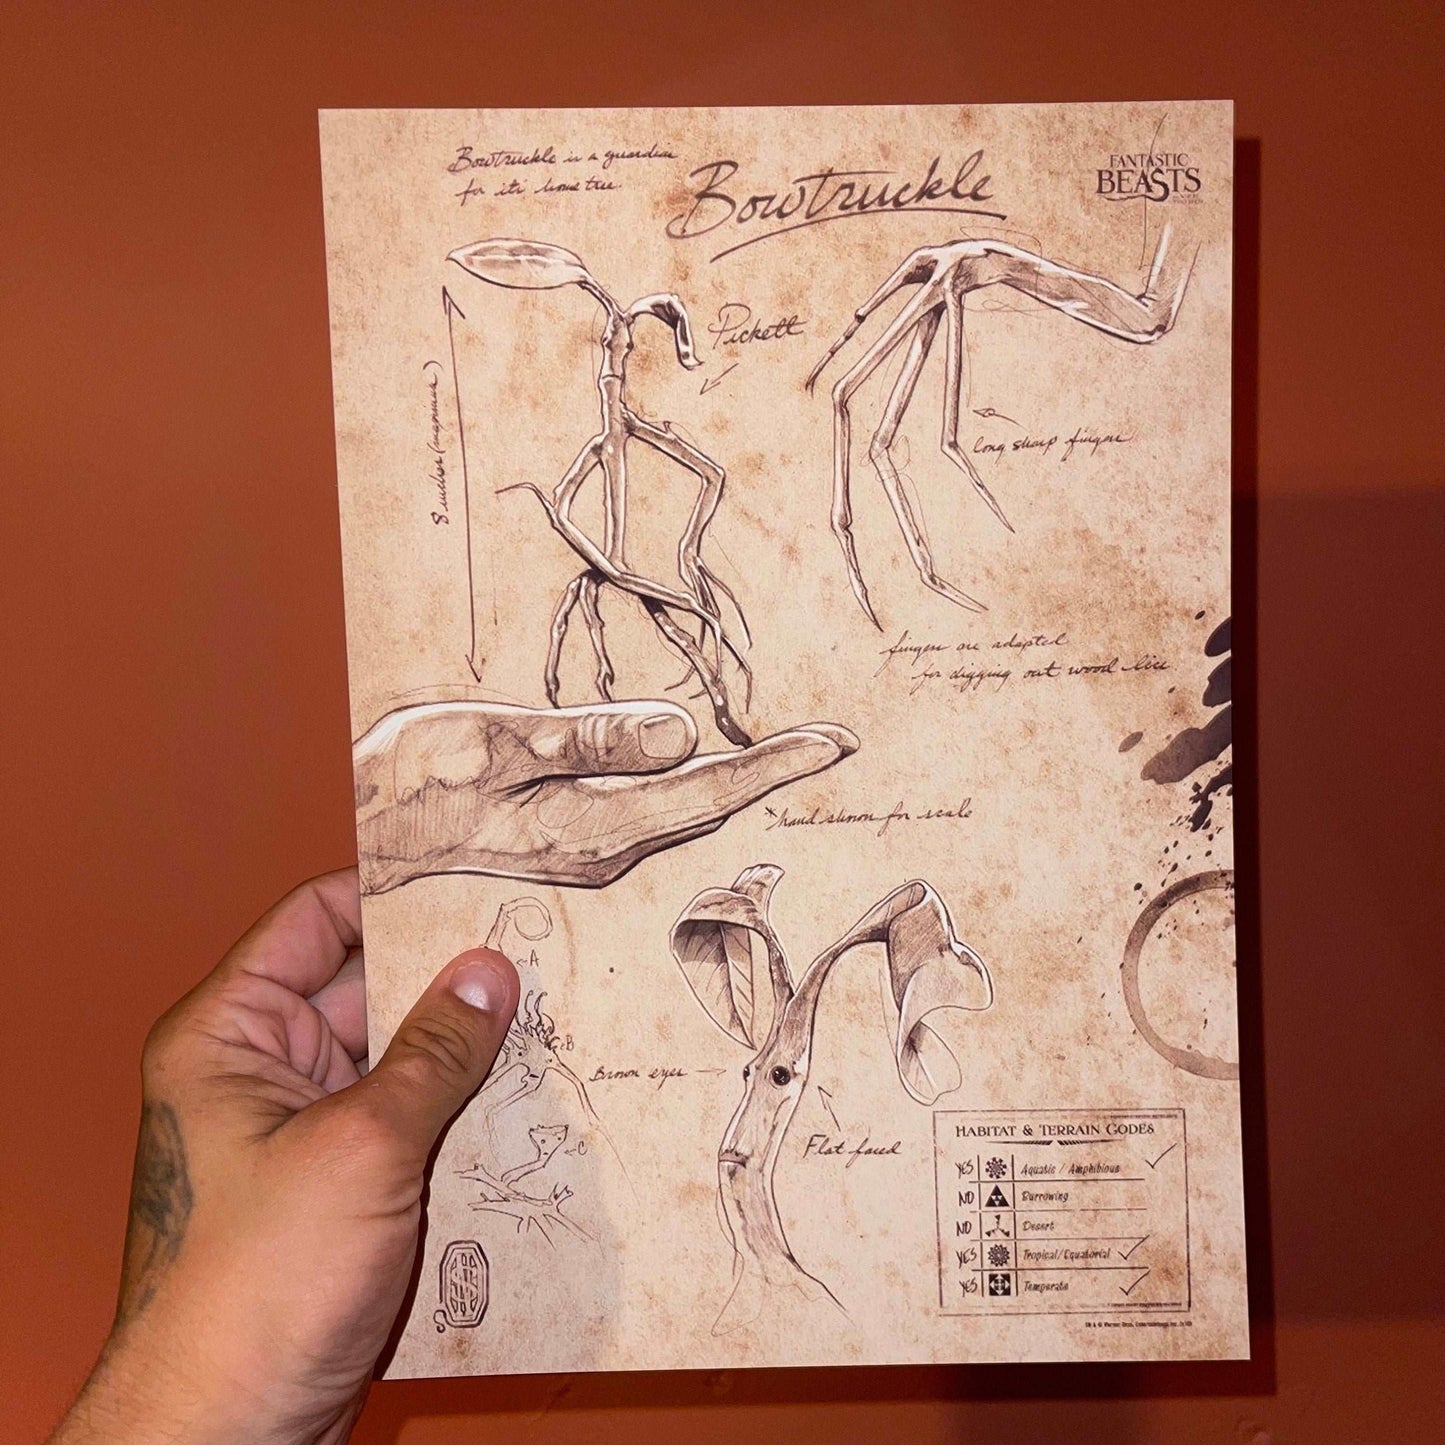 Bowtruckle is a guardian
for its home tree.
Bowtruckle
FANTASTIC
BEASTS
Pickett
8 inches (maximum)
long sharp fingers
fingers are adapted
for digging out wood lice.
*hand shown for scale
A
B
Brown eyes
Flat faced
C
HABITAT & TERRAIN CODES
YES Aquatic / Amphibious
NO Burrowing
NO Desert
YES Tropical/Equatorial
YES Temperate